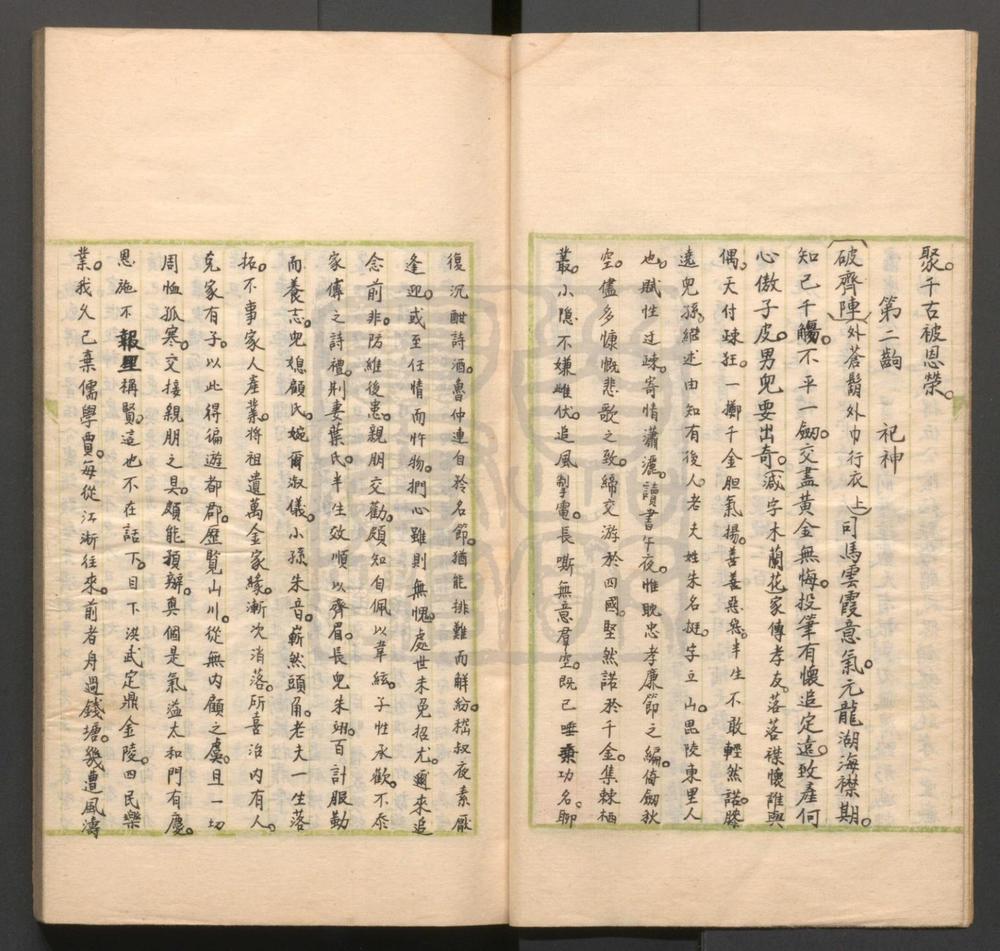 聚。千古被恩榮。
第二齣　祀神
（破齊陣）（外蒼鬍外巾行衣上）司馬雲霞意氣。元龍湖海襟期。
知己千觴。不平一劒。交盡黃金無悔。投筆有懷追定遠。致產何
心傲子皮。男兒要出奇。（減字木蘭花）家傳孝友。落落襟懷難與
偶。天付疎狂。一擲千金胆氣揚。善善惡惡。半生不敢輕然諾。滕
遠兒孫。繼述由知有後人。老夫姓朱名挺。字立山。毘陵東里人
也。賦性迂疎。寄情瀟灑。讀書午夜。惟耽忠孝廉節之編。倚劒秋
空。儘多慷慨悲歌之致。締交游於四國。堅然諾於千金。集棘栖
叢。小隱不嫌雌伏。追風掣電。長嘶無意羣空。既已唾棄功名。聊
復沉酣詩酒。魯仲連自矜名節。猶能排難而解紛。嵇叔夜素厭
逢迎。或至任情而忤物。捫心雖則無愧。處世未免招尤。邇來追
念前非。防維後患。親朋交勸。頗知自佩以韋絃。子性承歡。不忝
家傳之詩禮。荆妻葉氏。半生效順以齊眉。長兒朱翊。百計服勤
而養志。兒媳顧氏。婉爾淑儀。小孫朱音。嶄然頭角。老夫一生落
拓。不事家人產業。將祖遺萬金家緣。漸次消落。所喜治内有人。
克家有子。以此得徧遊都郡。歷覽山川。從無内顧之虞。且一切
周恤孤寒。交接親朋之具。頗能預辦。真個是氣溢太和門有慶。
恩施不報里稱賢。這也不在話下。目下洪武定鼎金陵。四民樂
業。我久已棄儒學賈。每從江淅往來。前者舟過錢塘。幾遭風濤